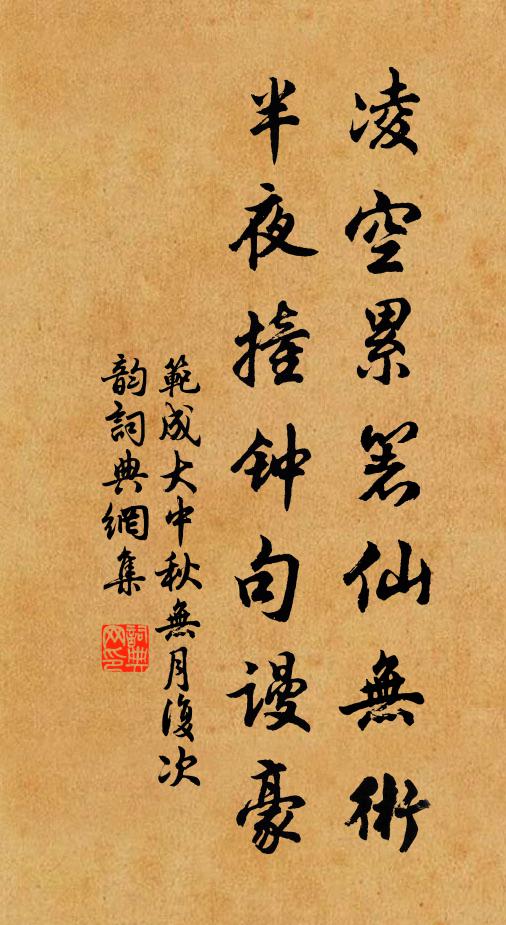 凌空累箸仙無術
半夜撞钟句谩豪
範成大中秋無月復次
韵詞典網集
詞典网印